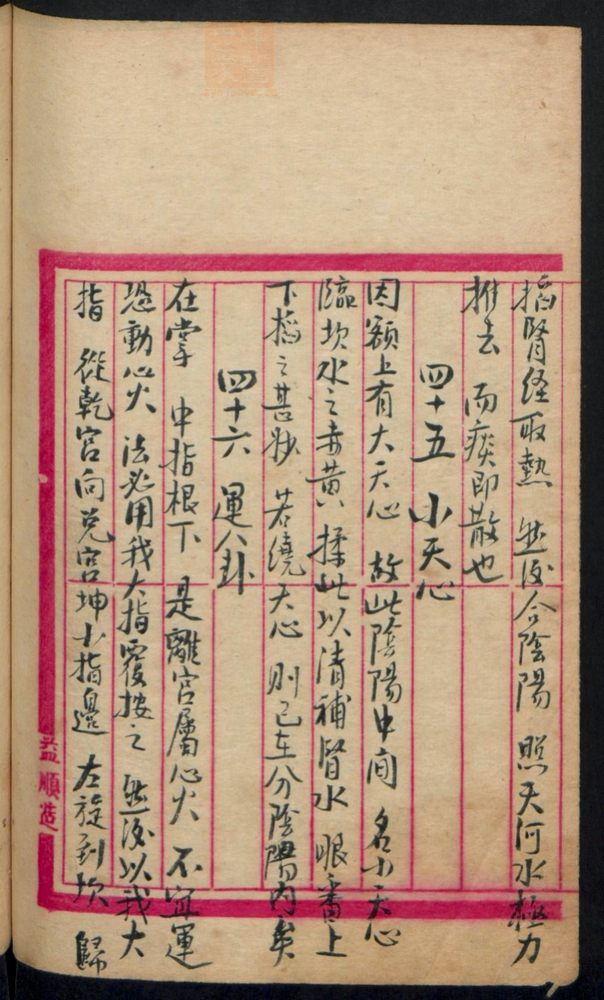 掐腎経取熱 然后合陰陽 照天河水極力
推去 而痰即散也
四十五 小天心
因額上有大天心 故此陰陽中间 名小天心
臨坎水之赤黄 揉此以清補腎水 眼番上
下掐之甚妙 若繞天心 則已在分陰陽内矣
四十六 運八卦
在掌 中指根下 是離宮屬心火 不宜運
恐動心火 法必用我大指覆按之 然後以我大
指 從乾宮向兑宮坤小指邉 左旋到坎 歸
益順造